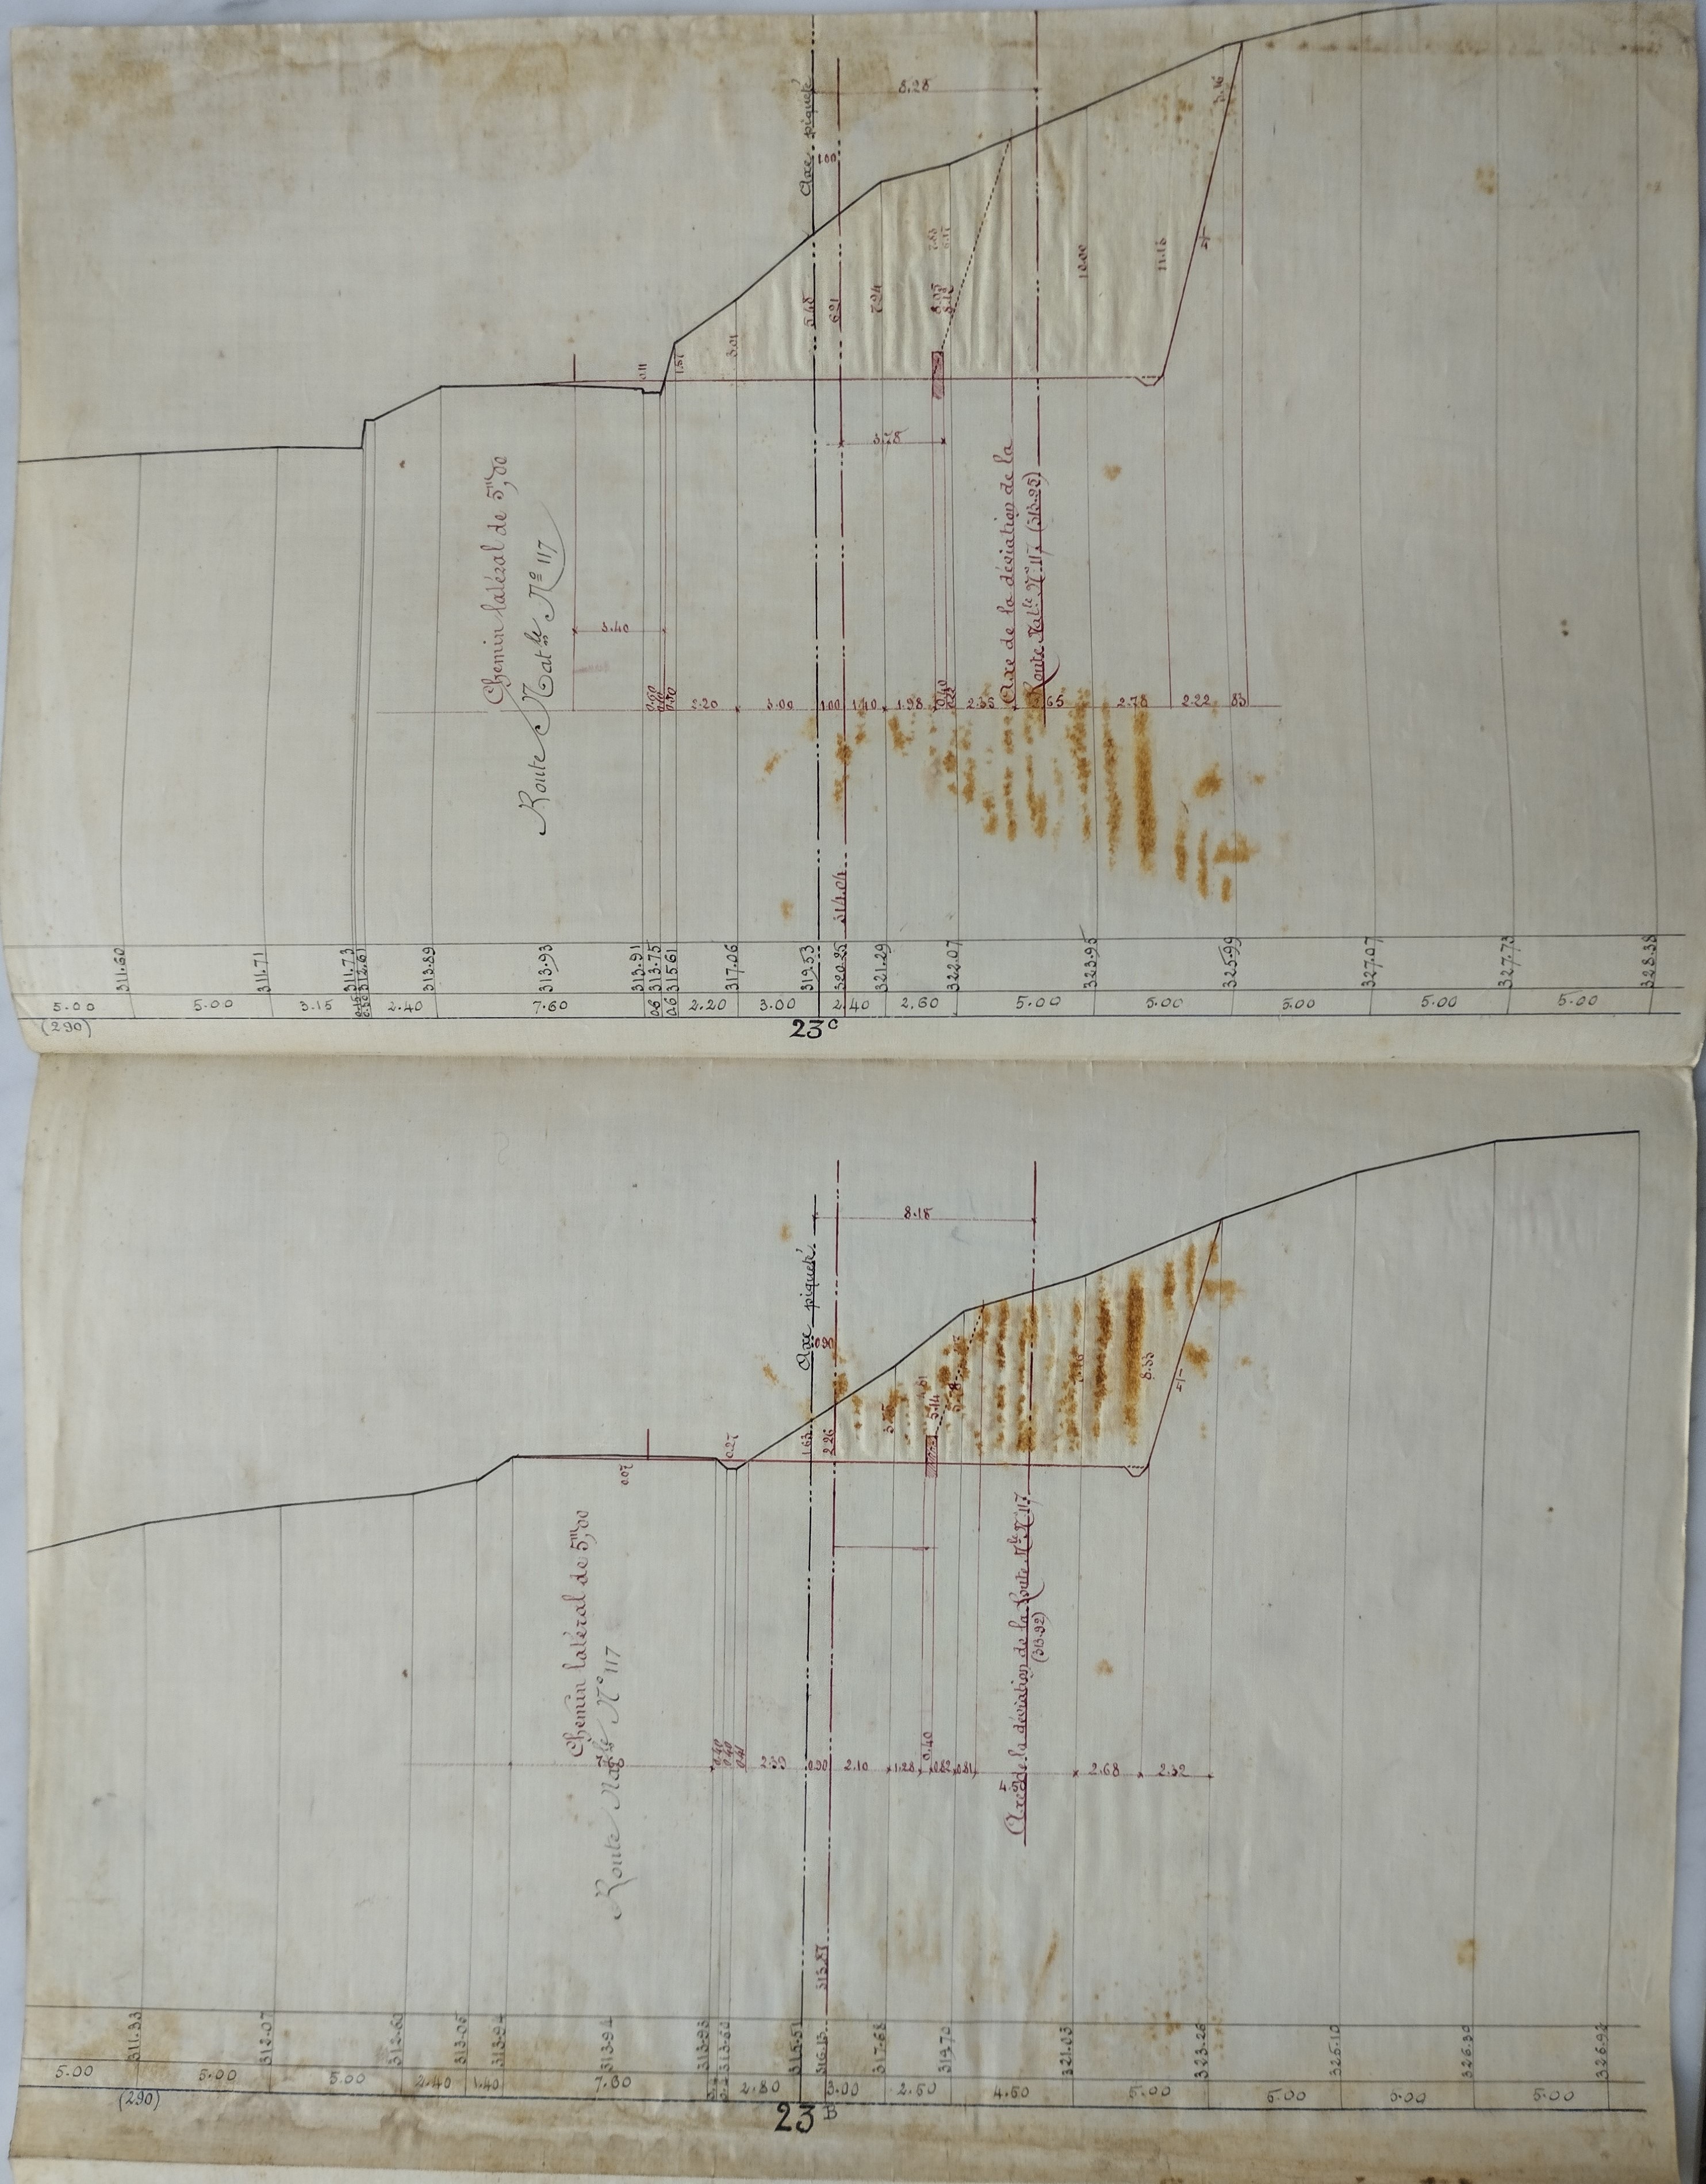 8.28
Axe piqueté
1.00
3.16
7.83
6.17
10.00
11.16
5.48
6.21
7.24
8.05
0.11
1.57
3.01
3.78
Chemin latéral de 5m,00
Route Natle No 117
Axe de la déviation de la
Route Natle No 117 (313.95)
5.40
0.50
2.20
3.00
1.00
1.40
1.98
0.40
2.35
65
2.78
2.22
83
314.04
311.60
311.71
311.73
312.61
313.89
313.93
313.91
313.75
315.61
317.06
319.53
320.25
321.29
322.07
323.95
325.99
327.07
327.73
328.38
5.00
5.00
3.15
2.40
7.60
0.6
0.6
2.20
3.00
2.40
2.60
5.00
5.00
5.00
5.00
5.00
(290)
23c
8.18
Axe piqueté
0.90
0.27
1.63
2.26
5.14
8.33
0.07
Chemin latéral de 5m,00
Route Natle No 117
Axe de la déviation de la Route Nle No 117
(313.92)
0.40
0.90
2.10
1.28
0.40
0.82
0.81
2.68
2.32
313.87
311.33
312.07
312.63
313.05
313.94
313.94
313.93
313.60
315.51
316.13
317.68
319.70
321.03
323.26
325.10
326.30
326.92
5.00
5.00
5.00
2.40
1.40
7.30
2.80
3.00
2.50
4.50
5.00
5.00
5.00
5.00
(290)
23B